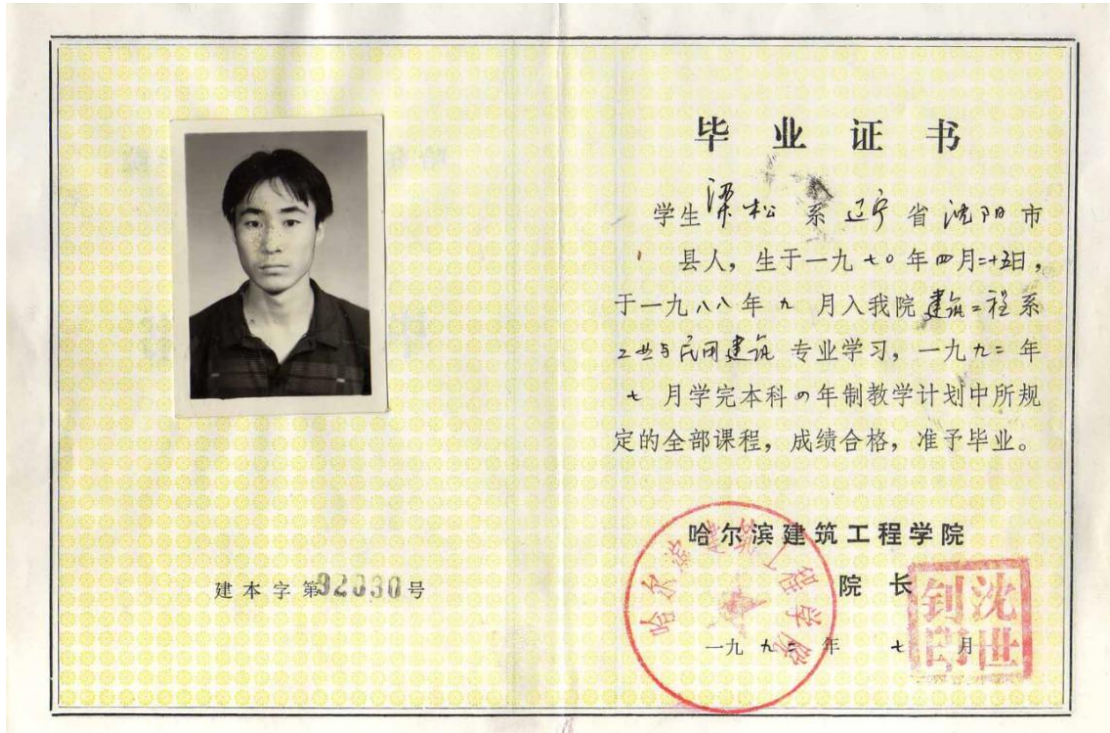 毕业证书
学生梁松系辽宁省沈阳市
县人，生于一九七〇年四月二十五日，
于一九八八年九月入我院建筑工程系
工业与民用建筑专业学习，一九九二年
七月学完本科四年制教学计划中所规
定的全部课程，成绩合格，准予毕业。
哈尔滨建筑工程学院
院长
沈世钊印
哈尔滨建筑工程学院
一九九二年七月
建本字第92330号